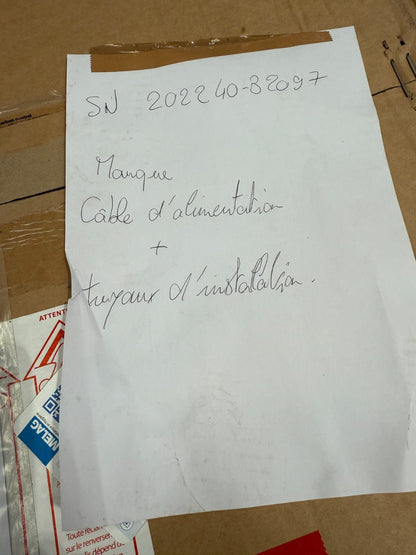 SN 202240-B2097
Manque
Câble d'alimentation
+
tuyaux d'installation.
ATTENT
MELAG
Toute réclam
sur le renverser
dépend d